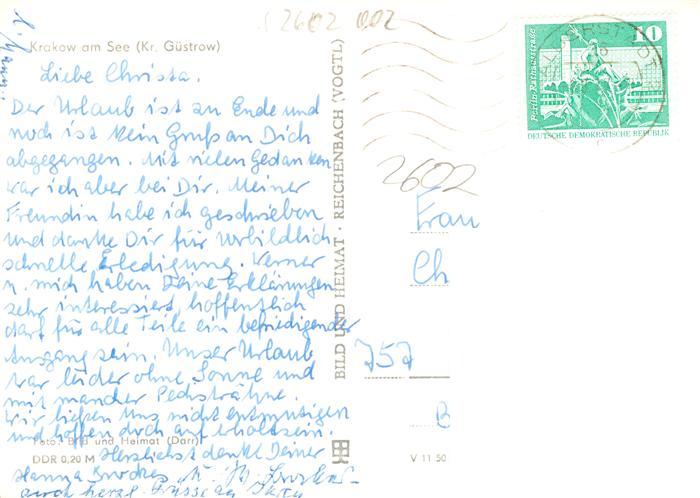 2602 002
Krakow am See (Kr. Güstrow)
Liebe Christa.
Der Urlaub ist zu Ende und
noch ist kein Gruß an Dich
abgegangen. Mit vielen Gedanken
war ich aber bei Dir. Meiner
Freundin habe ich geschrieben
und danke Dir für vorbildlich
schnelle Erledigung. Werner
u. mich haben Deine Erklärungen
sehr interessiert, hoffentlich
darf für alle Teile ein befriedigender
Ausgang sein. Unser Urlaub
war leider ohne Sonne und
mit mancher Pechsträhne.
Wir ließen uns nicht entmutigen
und hoffen doch auf
Foto: Bild und Heimat (Darr)
DDR 0,20 M
Herzlichst dankt Deiner
Hanna
auch herzl. Grüße an
BILD UND HEIMAT · REICHENBACH (VOGTL)
V 11 50
Berlin-Rathausstraße
10
DEUTSCHE DEMOKRATISCHE REPUBLIK
2602
Frau
Ch
757
B